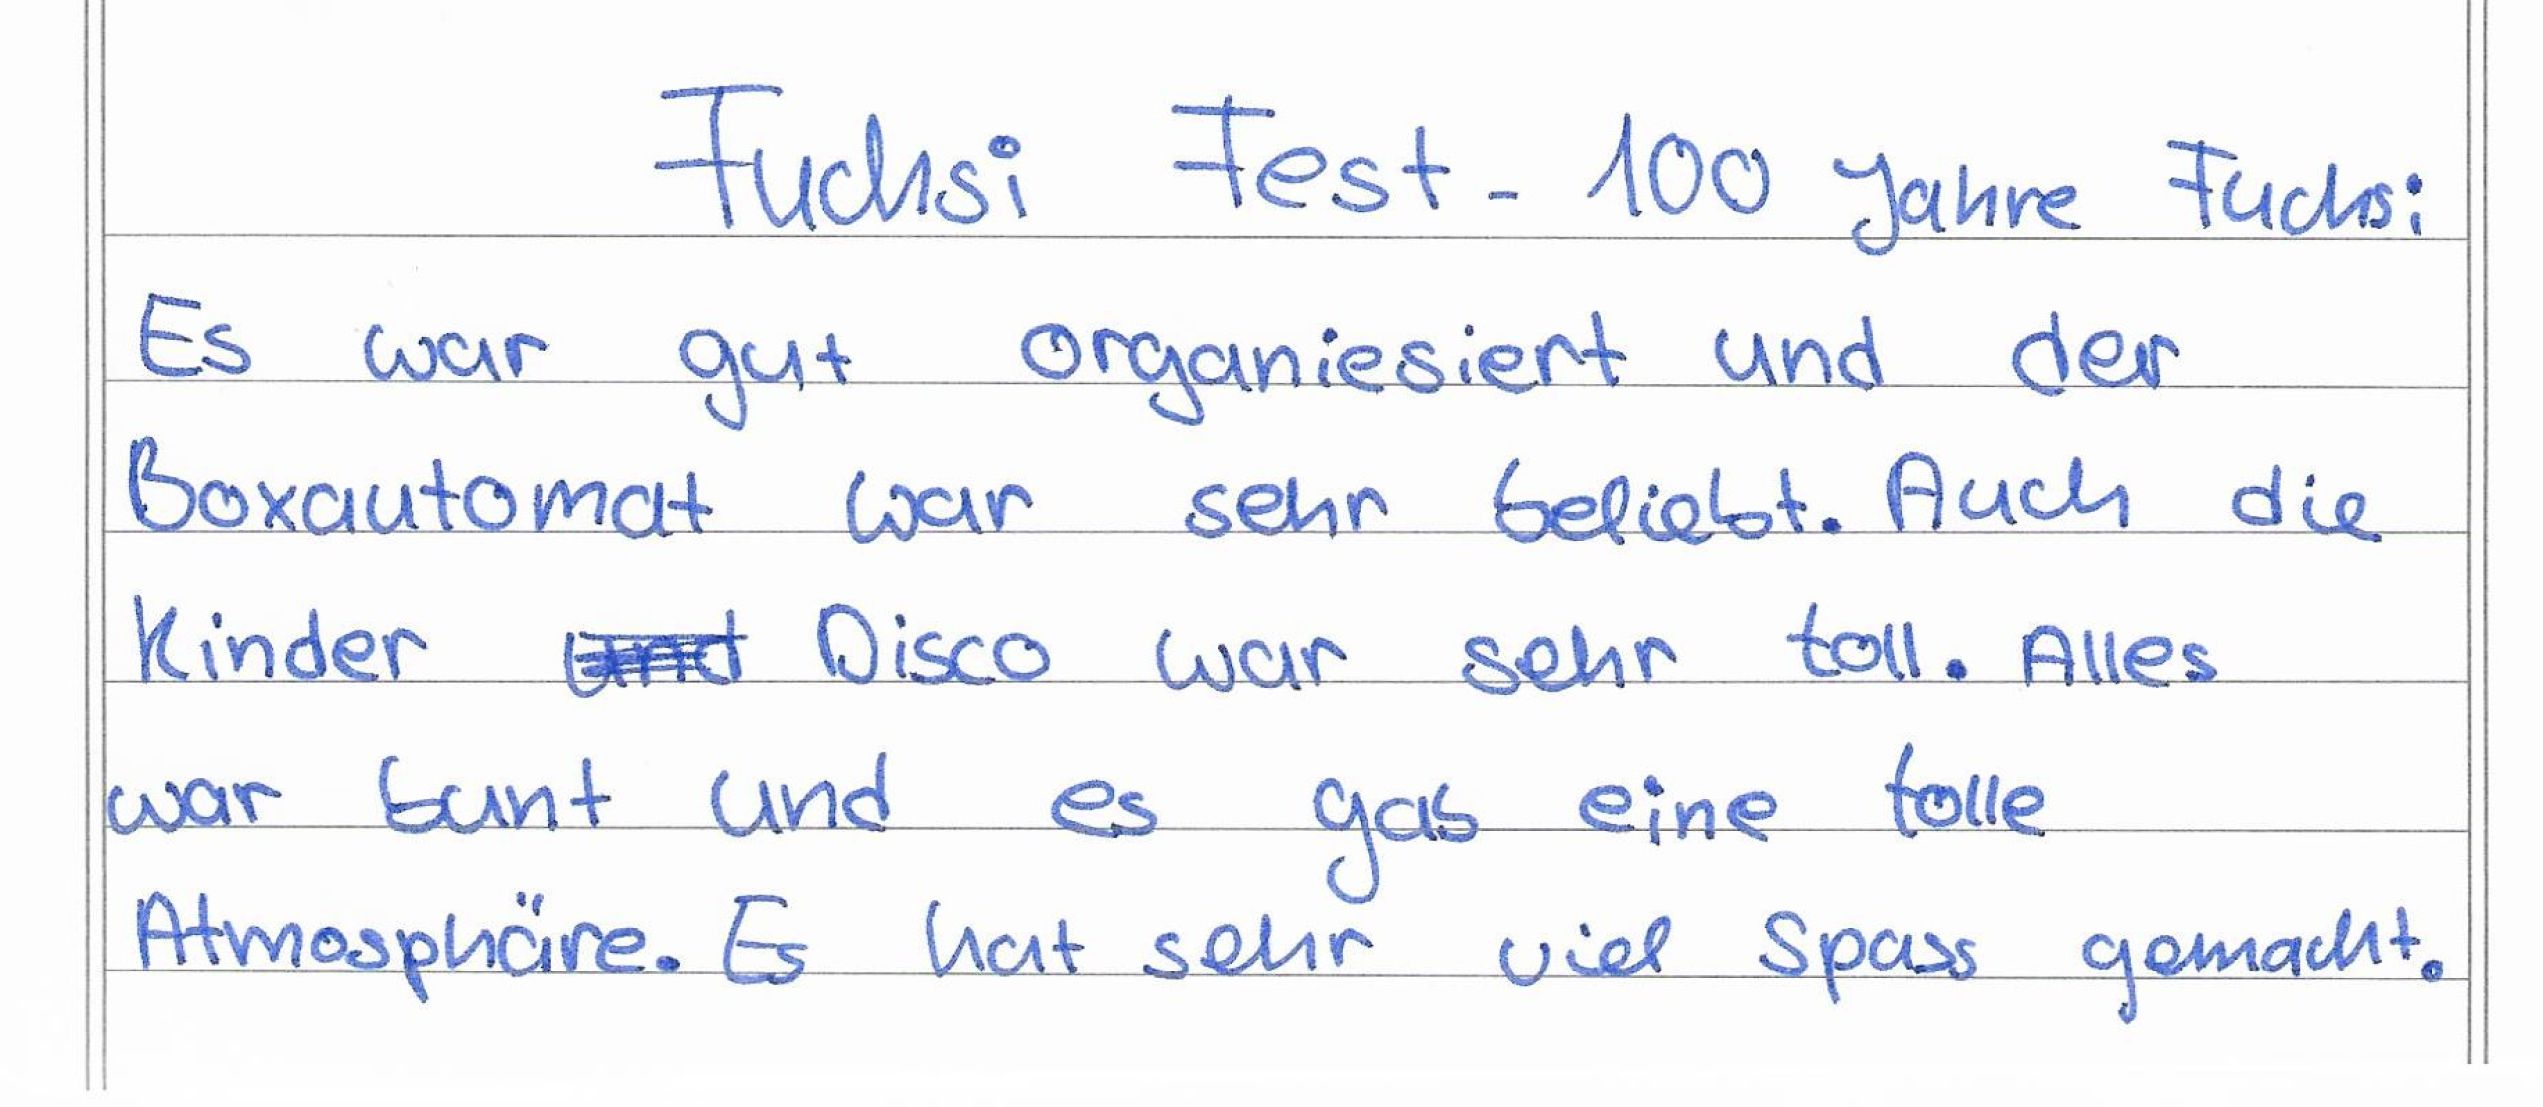 Fuchsi Fest - 100 Jahre Fuchsi
Es war gut organiesiert und der
Boxautomat war sehr beliebt. Auch die
Kinder und Disco war sehr toll. Alles
war bunt und es gab eine tolle
Atmosphäre. Es hat sehr viel Spass gemacht.